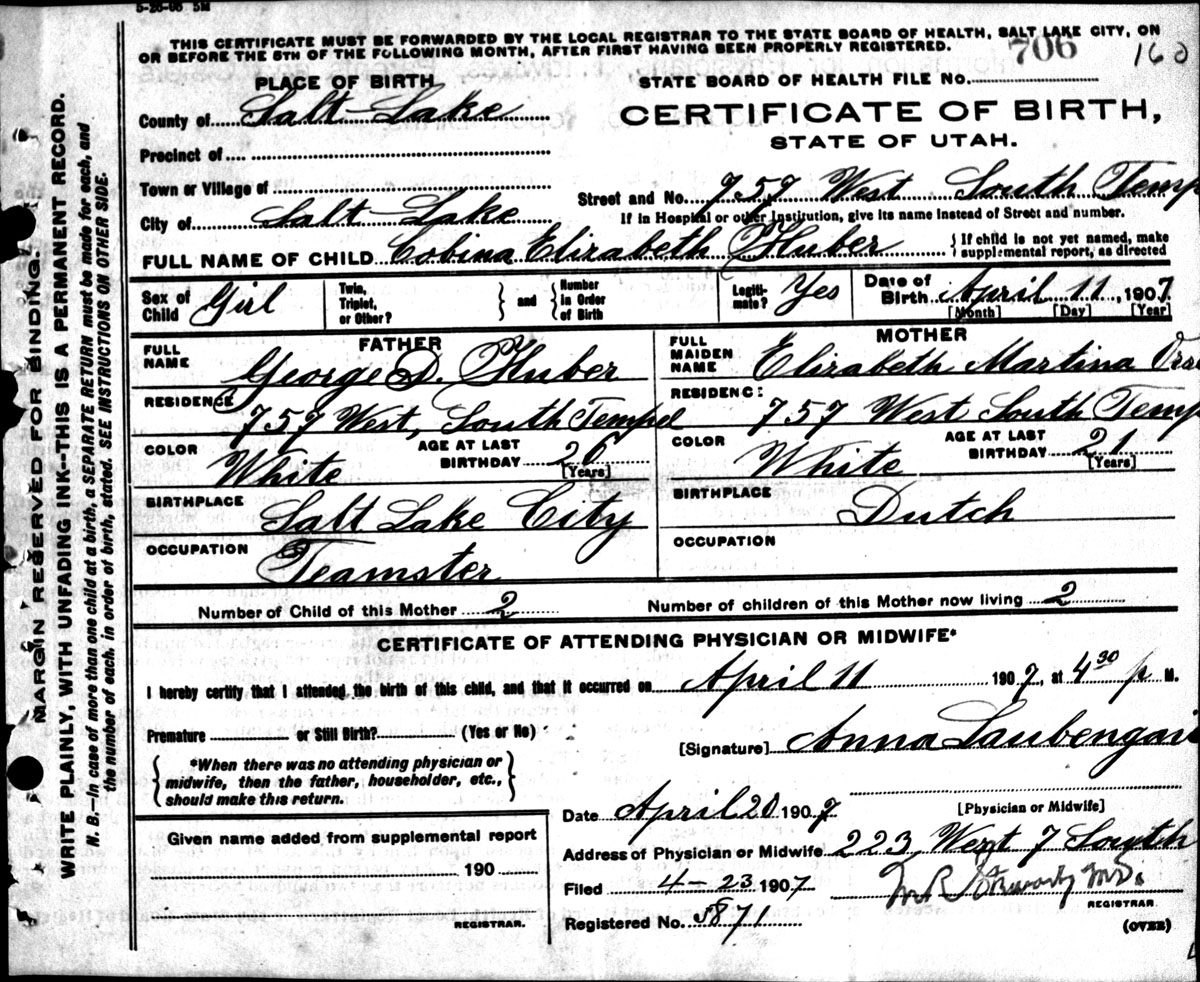 5-26-06 5M
THIS CERTIFICATE MUST BE FORWARDED BY THE LOCAL REGISTRAR TO THE STATE BOARD OF HEALTH, SALT LAKE CITY, ON
OR BEFORE THE 5TH OF THE FOLLOWING MONTH, AFTER FIRST HAVING BEEN PROPERLY REGISTERED.
706
160
PLACE OF BIRTH
STATE BOARD OF HEALTH FILE NO.
County of Salt Lake
CERTIFICATE OF BIRTH,
STATE OF UTAH.
Precinct of
Town or Village of
Street and No. 757 West South Temp
City of Salt Lake
If in Hospital or other Institution, give its name instead of Street and number.
FULL NAME OF CHILD Cobina Elizabeth Huber
{ If child is not yet named, make
supplemental report, as directed
Sex of Child Girl
Twin, Triplet, or Other? } and { Number in Order of Birth
Legiti-mate? Yes
Date of Birth April 11, 1907
[Month] [Day] [Year]
FATHER
FULL NAME George D. Huber
RESIDENCE 757 West, South Tempel
COLOR White
AGE AT LAST BIRTHDAY 26
[Years]
BIRTHPLACE Salt Lake City
OCCUPATION Teamster
MOTHER
FULL MAIDEN NAME Elizabeth Martina
RESIDENCE: 757 West South Temp
COLOR White
AGE AT LAST BIRTHDAY 21
[Years]
BIRTHPLACE Dutch
OCCUPATION
Number of Child of this Mother 2
Number of children of this Mother now living 2
CERTIFICATE OF ATTENDING PHYSICIAN OR MIDWIFE*
I hereby certify that I attended the birth of this child, and that it occurred on April 11 1907, at 4 30 p M.
Premature or Still Birth? (Yes or No)
[Signature] Anna Laubengai
{ *When there was no attending physician or
midwife, then the father, householder, etc.,
should make this return. }
[Physician or Midwife]
Date April 20 1907
Given name added from supplemental report
190
REGISTRAR.
Address of Physician or Midwife 223 West 7 South
Filed 4-23 1907
M R Stewart, MD.
REGISTRAR.
Registered No. 5871
(OVER)
MARGIN RESERVED FOR BINDING.
WRITE PLAINLY, WITH UNFADING INK—THIS IS A PERMANENT RECORD.
N. B.—In case of more than one child at a birth, a SEPARATE RETURN must be made for each, and
the number of each, in order of birth, stated. SEE INSTRUCTIONS ON OTHER SIDE.